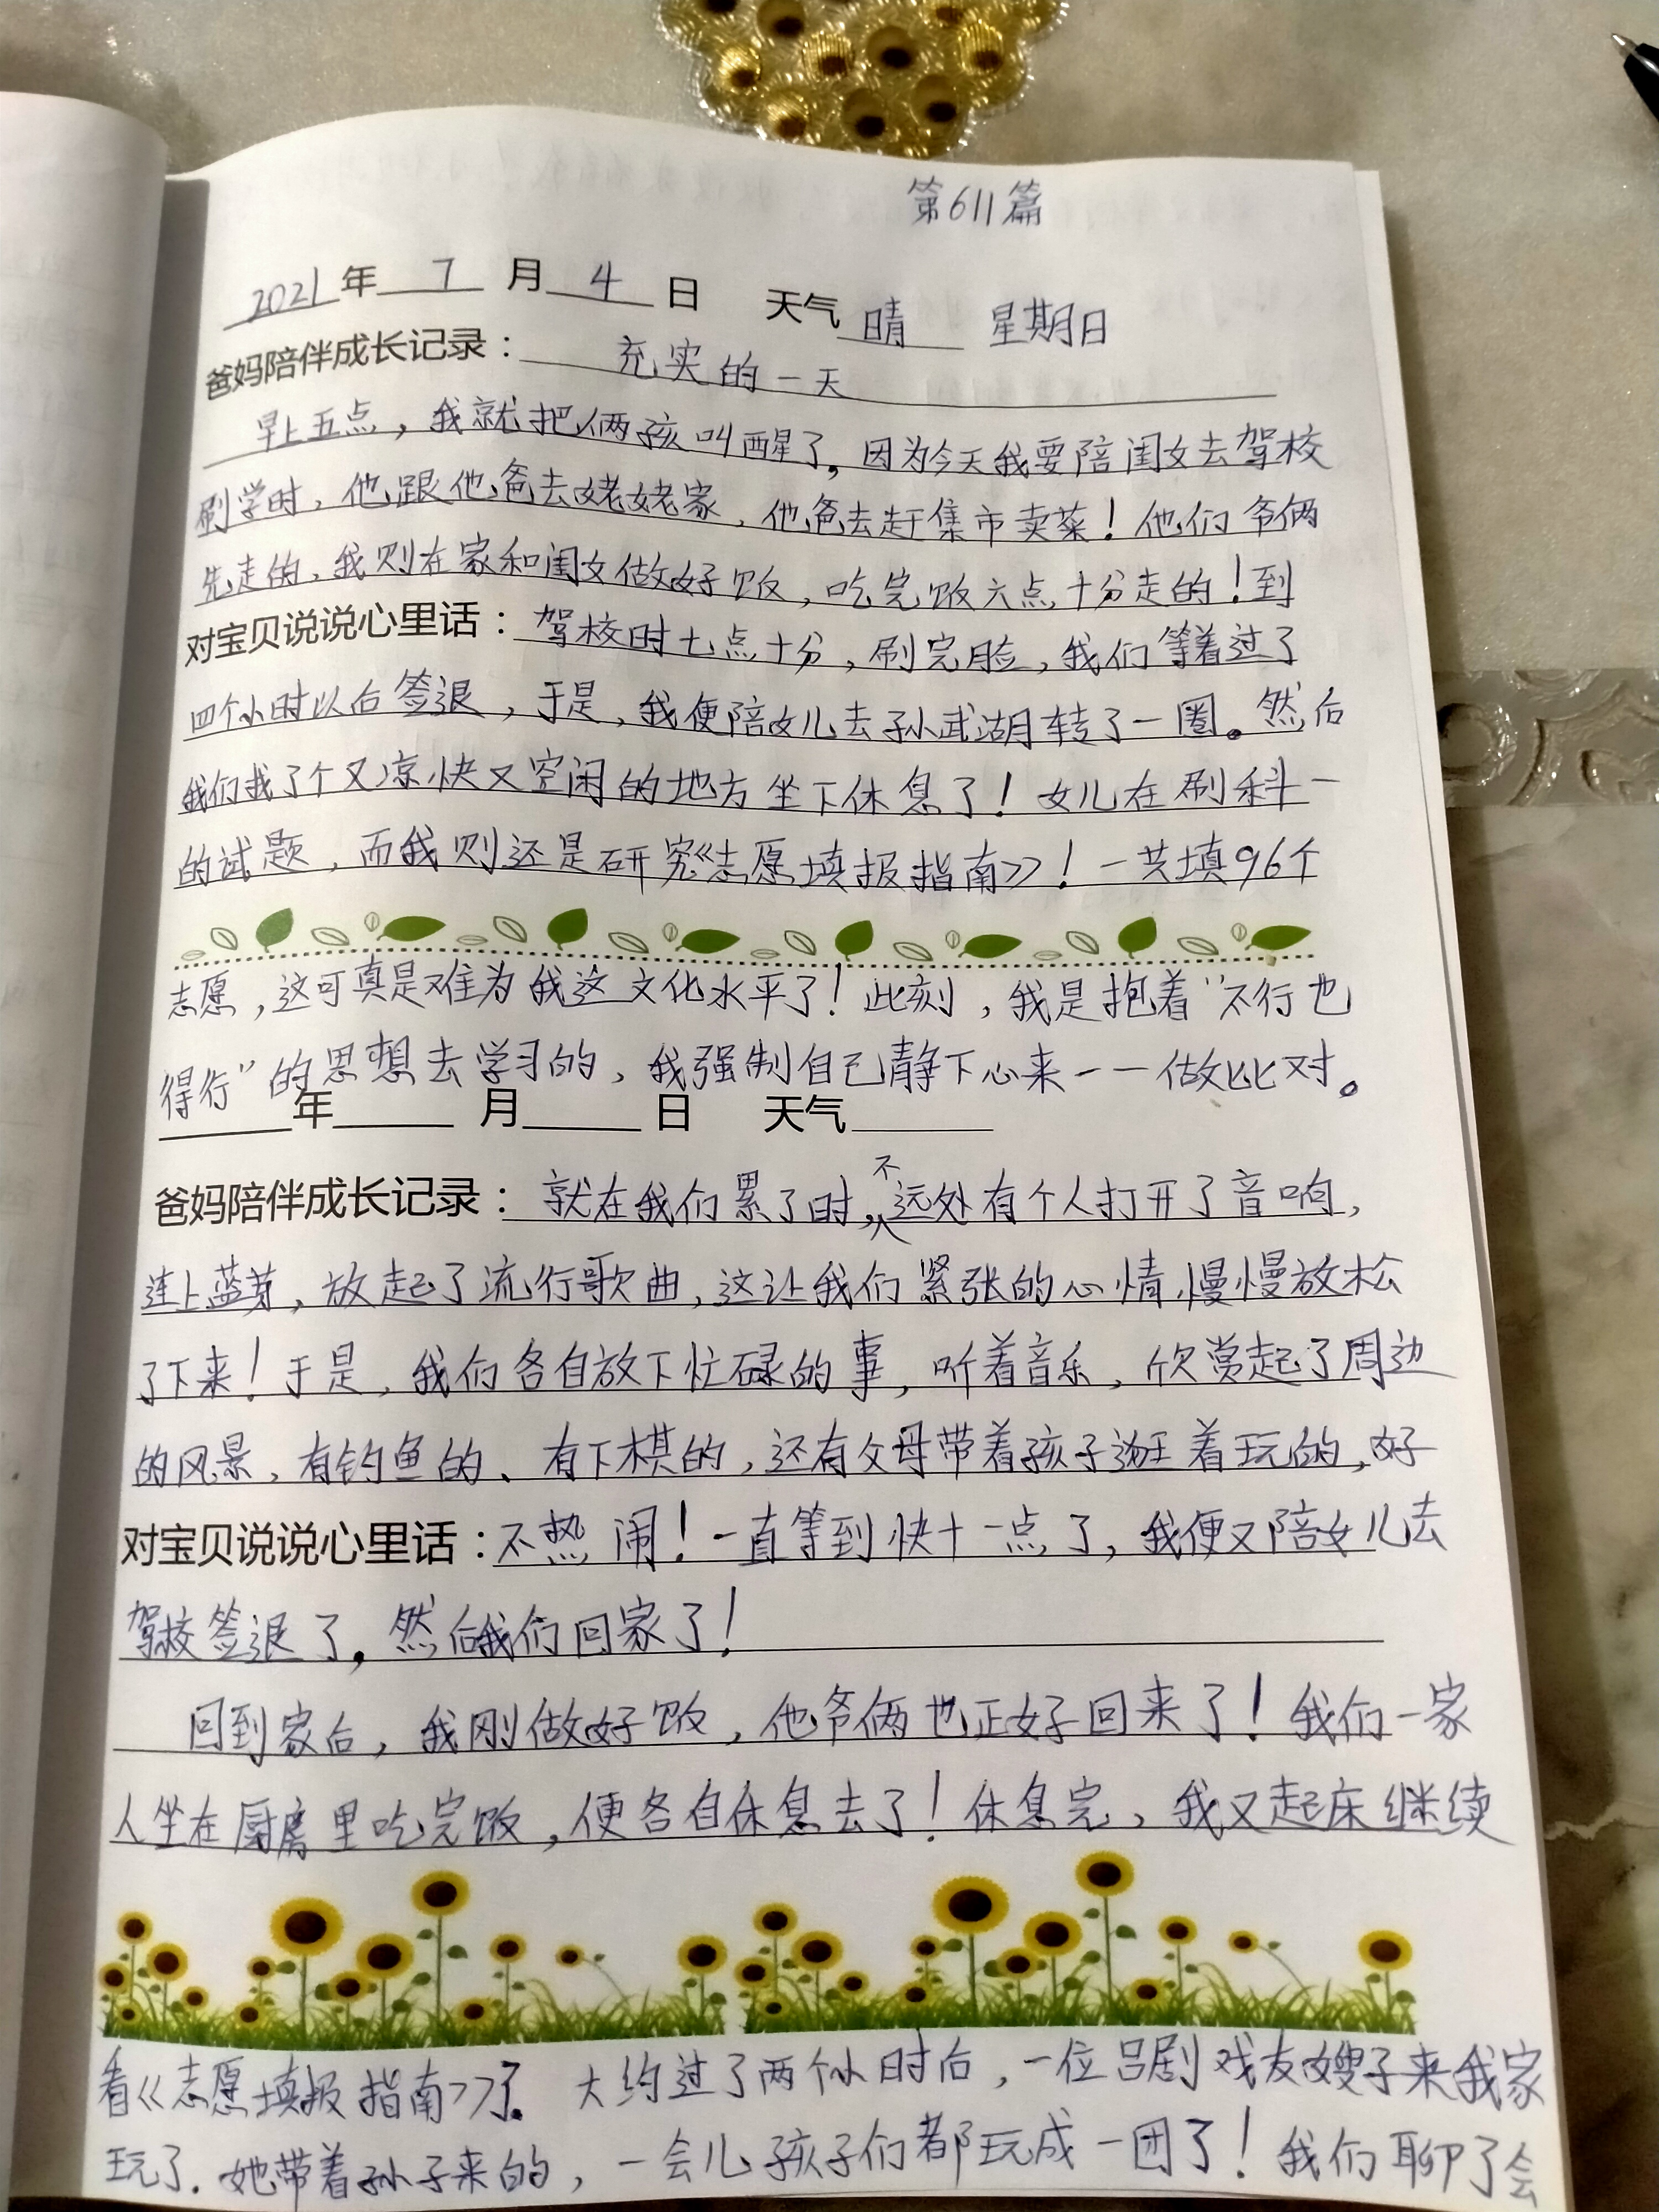 第611篇
2021年 7 月 4 日 天气 晴 星期日
爸妈陪伴成长记录： 充实的一天
早上五点，我就把俩孩叫醒了，因为今天我要陪闺女去驾校
刷学时，他跟他爸去姥姥家，他爸去赶集市卖菜！他们爷俩
先走的，我则在家和闺女做好饭，吃完饭六点十分走的！到
对宝贝说说心里话：驾校时七点十分，刷完脸，我们等着过了
四个小时以后签退，于是，我便陪女儿去孙武湖转了一圈。然后
我们找了个又凉快又空闲的地方坐下休息了！女儿在刷科一
的试题，而我则还是研究《志愿填报指南》！一共填96个
志愿，这可真是难为我这文化水平了！此刻，我是抱着“不行也
得行”的思想去学习的，我强制自己静下心来一一做比对。
年 月 日 天气
爸妈陪伴成长记录：就在我们累了时，不远处有个人打开了音响，
连上蓝芽，放起了流行歌曲，这让我们紧张的心情慢慢放松
了下来！于是，我们各自放下忙碌的事，听着音乐，欣赏起了周边
的风景，有钓鱼的、有下棋的，还有父母带着孩子逛着玩的，好
对宝贝说说心里话：不热闹！一直等到快十一点了，我便又陪女儿去
驾校签退了，然后我们回家了！
回到家后，我刚做好饭，他爷俩也正好回来了！我们一家
人坐在厨房里吃完饭，便各自休息去了！休息完，我又起床继续
看《志愿填报指南》了。大约过了两个小时后，一位吕剧戏友嫂子来我家
玩了．她带着孙子来的，一会儿孩子们都玩成一团了！我们聊了会